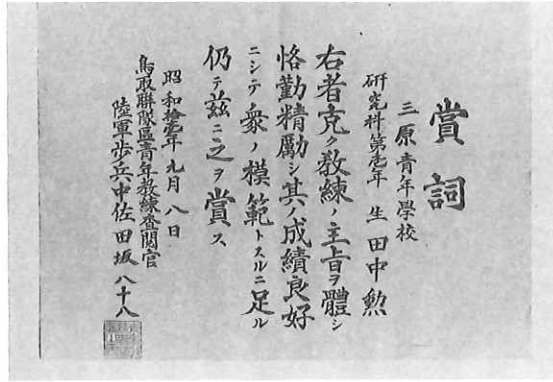 賞詞
三原青年學校
研究科第壱年生 田中勲
右者克ク教練ノ主旨ヲ體シ
恪勤精勵シ其ノ成績良好
ニシテ衆ノ模範トスルニ足ル
仍テ茲ニ之ヲ賞ス
昭和拾壱年九月八日
鳥取聯隊區青年教練査閲官
陸軍歩兵中佐田坂八十八